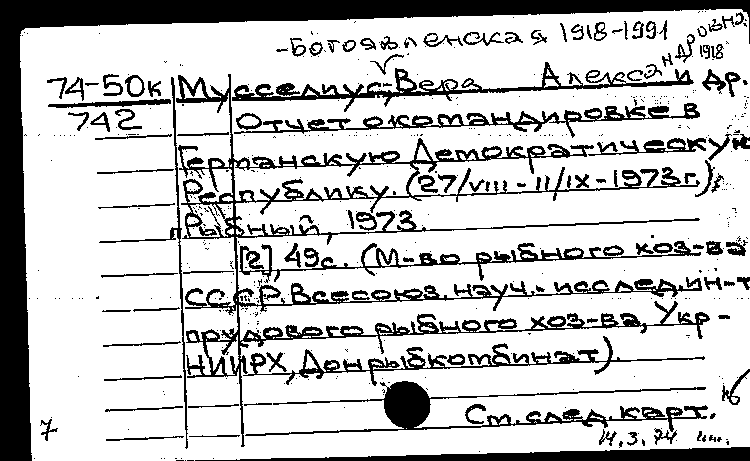 -Богоявленская 1918-1991
74-50к Мусселиус, Вера Александровна 1918 и др.
742 Отчет о командировке в
Германскую Демократическую
Республику. (27/VIII - 11/IX - 1973г.),
п. Рыбный, 1973.
[2], 49с. (М-во рыбного хоз-ва
СССР. Всесоюз. науч.-исслед. ин-т
прудового рыбного хоз-ва, Укр-
НИИРХ, Донрыбкомбинат).
См. след. карт.
7 14.3.74